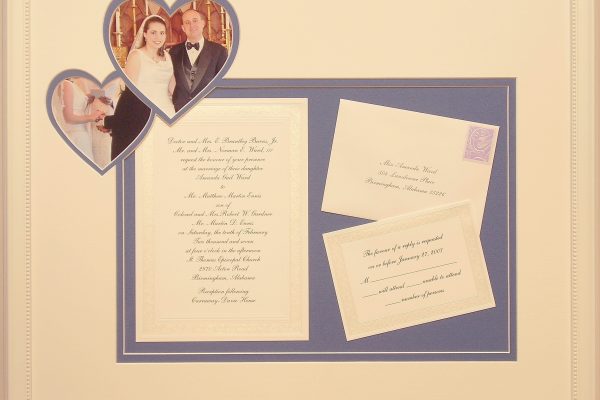 Doctor and Mrs. E. Brantley Burns, Jr.
Mr. and Mrs. Norman E. Ward, III
request the honour of your presence
at the marriage of their daughter
Amanda Gail Ward
to
Mr. Matthew Martin Ennis
son of
Colonel and Mrs. Robert W. Gardner
Mr. Martin D. Ennis
on Saturday, the tenth of February
Two thousand and seven
at four o'clock in the afternoon
St. Thomas Episcopal Church
2870 Acton Road
Birmingham, Alabama
Reception following
Carraway-Davie House
Miss Amanda Ward
Birmingham, Alabama
The favour of a reply is requested
on or before January 27, 2007
M
will attend unable to attend
number of persons